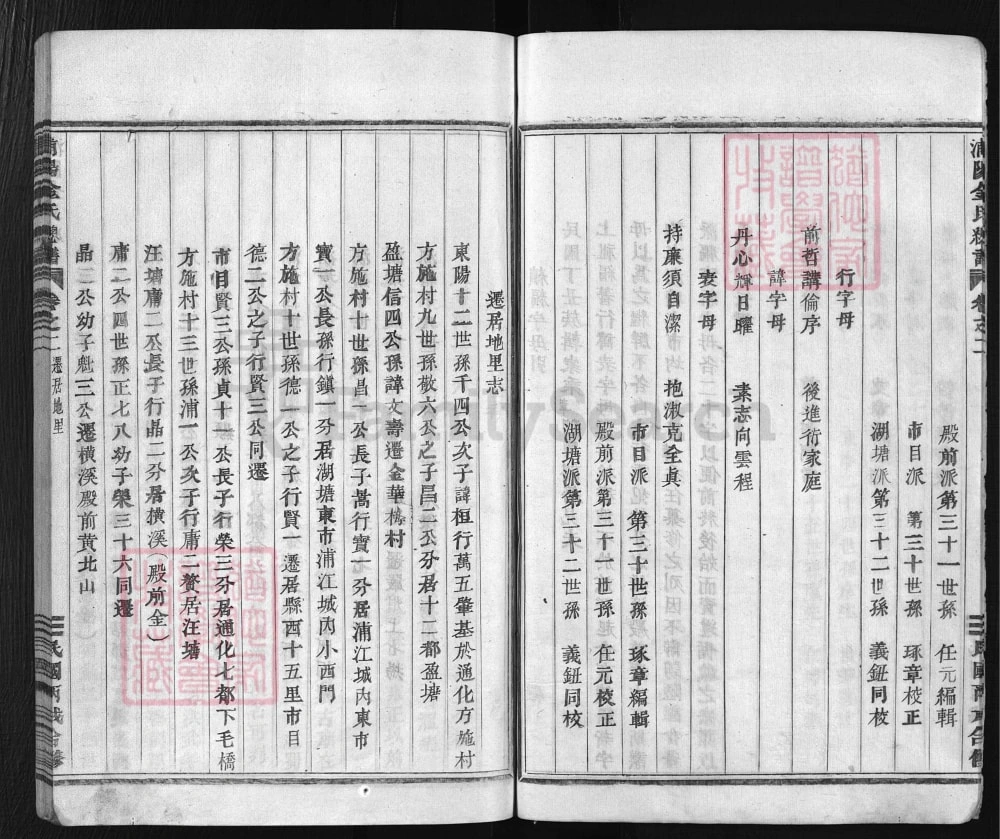 殿前派第三十一世孫 任元編輯
市目派 第三十世孫 琢章校正
湖塘派第三十二世孫 義鈕同校
行字母
前哲講倫序 後進術家庭
諱字母
丹心輝日曜 素志向雲程
表字母
持廉須自潔 抱淑克全眞
市目派 第三十世孫 琢章編輯
殿前派第三十一世孫 任元校正
湖塘派第三十二世孫 義鈕同校
遷居地里志
東陽十二世孫千四公次子諱桓行萬五肇基於通化方施村
方施村九世孫敬六公之子昌二公分居十二都盈塘
盈塘信四公孫諱文壽遷金華 村
方施村十世孫昌一公長子暠行實七分居浦江城內東市
實一公長孫行鎭一分居湖塘東市浦江城內小西門
方施村十世孫德一公之子行賢一遷居縣西十五里市目
德二公之子行賢三公同遷
市目賢三公孫貞十一公長子行榮三分居通化七都下毛橋
方施村十三世孫浦一公次子行庸二贅居汪塘
汪塘庸二公長子行晶二分居橫溪(殿前金)
庸二公四世孫正七八幼子榮三十六同遷
晶二公幼子魁三公遷橫溪殿前黃北山
浦陽金氏總譜 卷之二 遷居地里
民國丙戌合修
FamilySearch